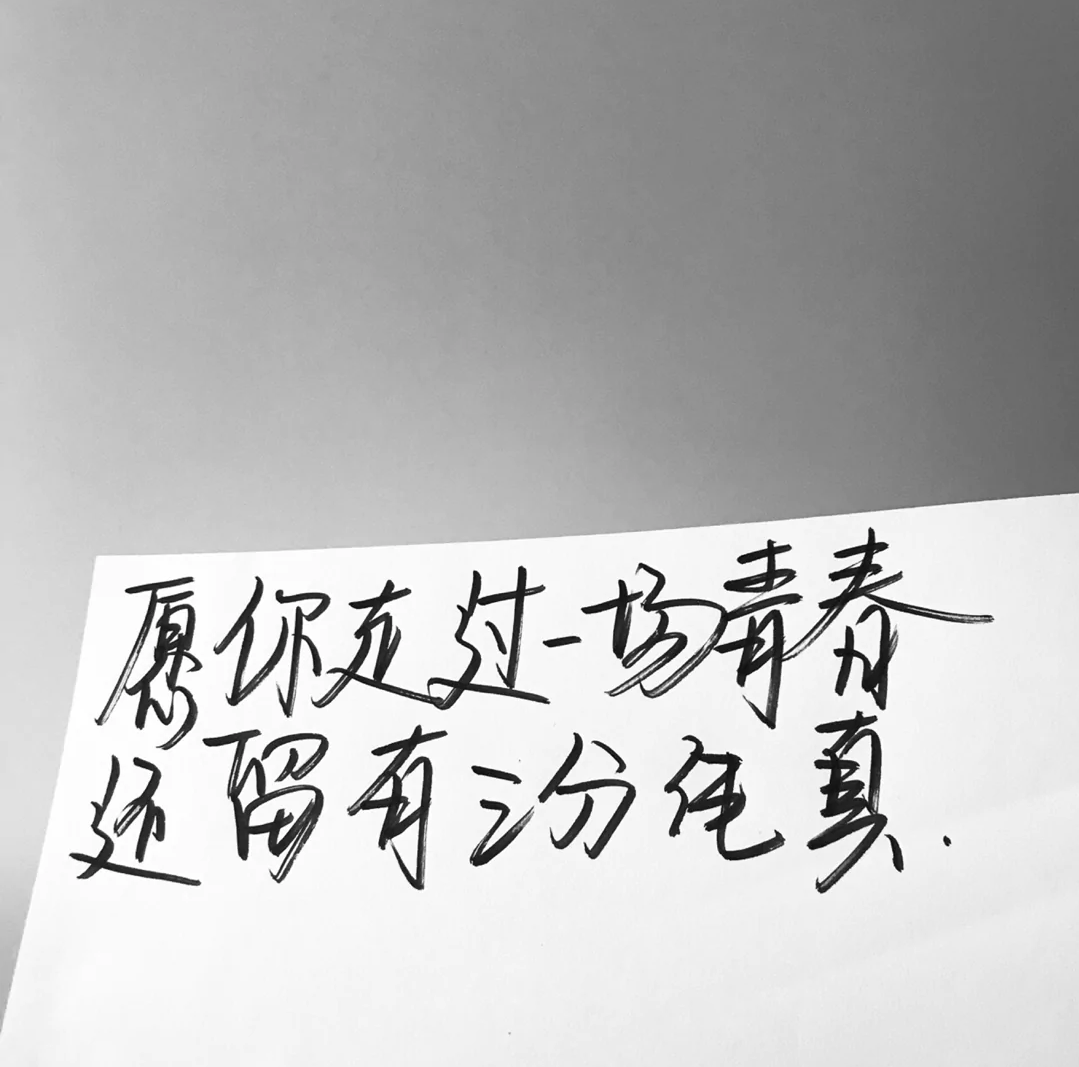 愿你走过一场青春
还留有三分纯真.